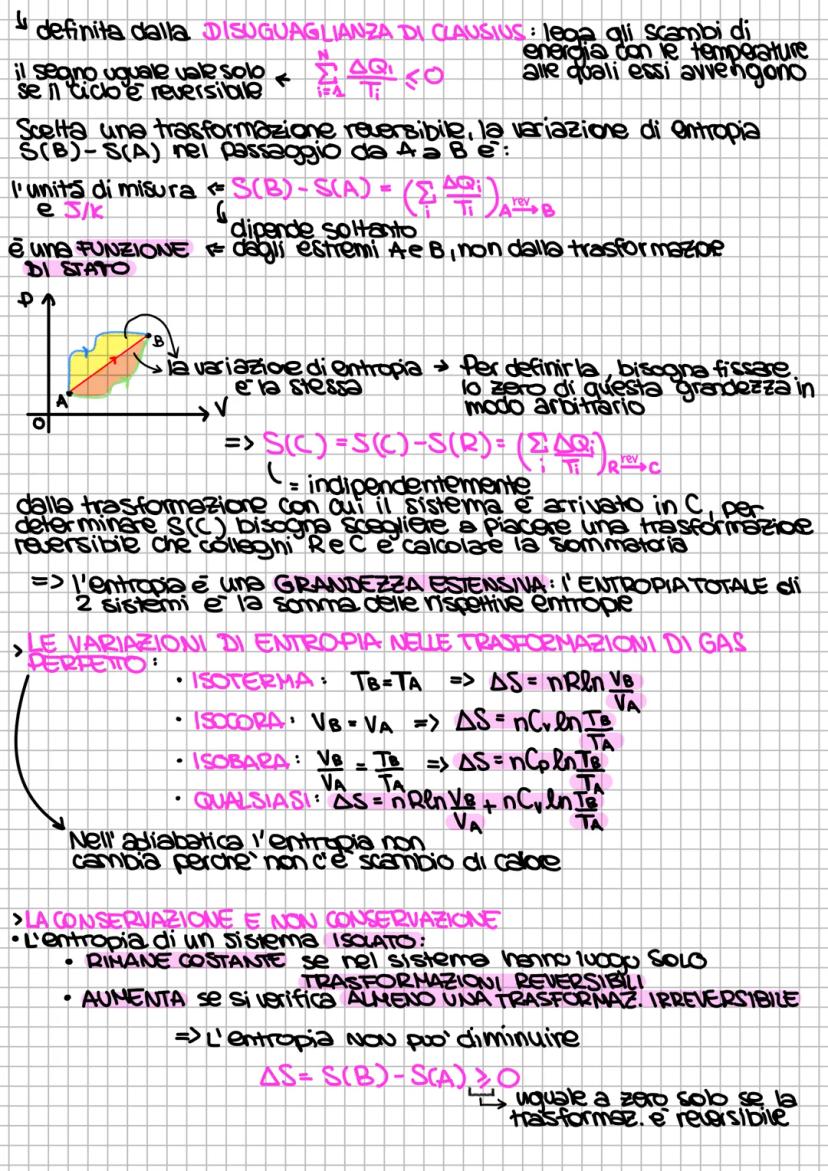 ↳ definita dalla DISUGUAGLIANZA DI CLAUSIUS: lega gli scambi di
energia con le temperature
alle quali essi avvengono
il segno uguale vale solo ← N Σ i=1 ΔQi/Ti ⩽ 0
se il ciclo è reversibile
Scelta una trasformazione reversibile, la variazione di entropia
S(B)-S(A) nel passaggio da A a B è:
l'unità di misura ⇐ S(B)-S(A) = (Σ i ΔQi/Ti) A rev→ B
è J/K
dipende soltanto
è una FUNZIONE ⇐ dagli estremi A e B, non dalla trasformazioe
DI STATO
P
B
la variazioe di entropia → Per definirla, bisogna fissare
è la stessa lo zero di questa grandezza in
A modo arbitrario
V
O
=> S(C) = S(C)-S(R) = (Σ i ΔQi/Ti) R rev→ C
= indipendentemente
dalla trasformazione con cui il sistema è arrivato in C, per
determinare S(C) bisogna scegliere a piacere una trasformazioe
reversibile che colleghi R e C e calcolare la sommatoria
=> l'entropia è una GRANDEZZA ESTENSIVA: l'ENTROPIA TOTALE di
2 sistemi è la somma delle rispettive entropie
> LE VARIAZIONI DI ENTROPIA NELLE TRASFORMAZIONI DI GAS
PERFETTO:
• ISOTERMA: TB=TA => ΔS = nRln VB/VA
• ISOCORA: VB = VA => ΔS = nCv ln TB/TA
• ISOBARA: VB/VA = TB/TA => ΔS = nCp ln TB/TA
• QUALSIASI: ΔS = nRln VB/VA + nCv ln TB/TA
Nell'adiabatica l'entropia non
cambia perché non c'è scambio di calore
> LA CONSERVAZIONE E NON CONSERVAZIONE
• L'entropia di un sistema ISOLATO:
• RIMANE COSTANTE se nel sistema hanno luogo SOLO
TRASFORMAZIONI REVERSIBILI
• AUMENTA se si verifica ALMENO UNA TRASFORMAZ. IRREVERSIBILE
=> L'entropia NON può diminuire
ΔS = S(B)-S(A) ⩾ 0
↳ uguale a zero solo se la
trasformaz. è reversibile